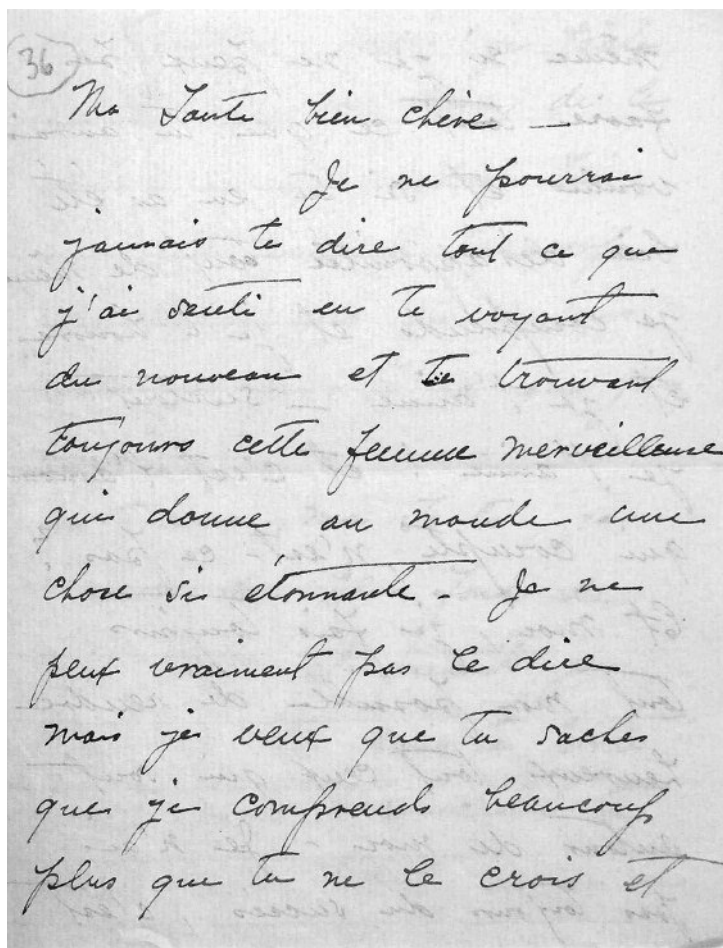 36
Ma Tante bien chère —
Je ne pourrai
jamais te dire tout ce que
j'ai senti en te voyant
du nouveau et te trouvant
toujours cette femme merveilleuse
qui donne au monde une
chose si étonnante - Je ne
peux vraiment pas le dire
mais je veux que tu saches
que je comprends beaucoup
plus que tu ne le crois et